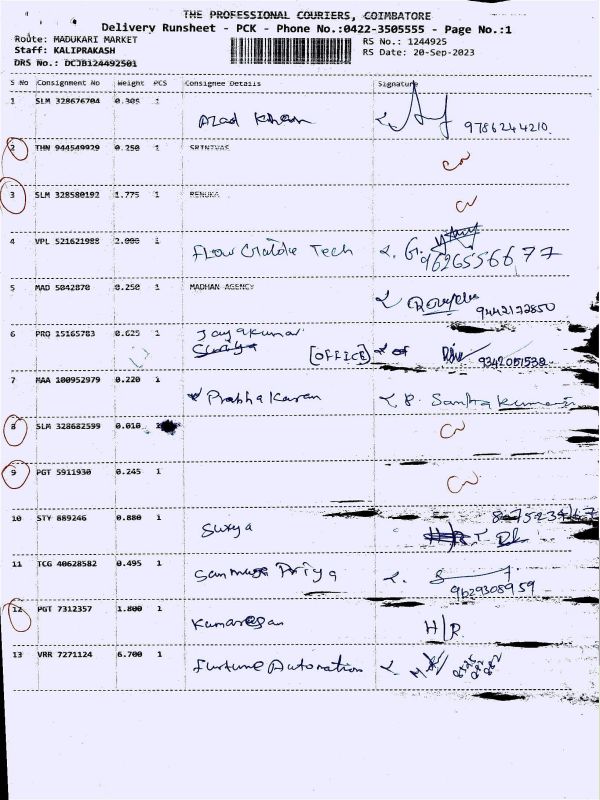 THE PROFESSIONAL COURIERS, COIMBATORE
Delivery Runsheet - PCK - Phone No.:0422-3505555 - Page No.:1
Route: MADUKARI MARKET
Staff: KALIPRAKASH
DRS No.: DCJB124492501
RS No.: 1244925
RS Date: 20-Sep-2023
S No Consignment No Weight PCS Consignee Details Signature
1 SLM 328676704 0.305 1 Azad Khan 9786244210.
2 THN 944549929 0.250 1 SRINIVAS
3 SLM 328580192 1.775 1 RENUKA
4 VPL 521621988 2.000 1 Tech 9626556677
5 MAD 5042870 0.250 1 MADHAN AGENCY 9442172850
6 PRO 15165783 0.625 1 Jayakumar
[OFFICE]
7 MAA 100952979 0.220 1 Prabhakaran
8 SLM 328682599 0.010
9 PGT 5911930 0.245 1
10 STY 889246 0.880 1 Surya
11 TCG 40628582 0.495 1 Priya 9629308959
12 PGT 7312357 1.800 1 Kumaresan H/R
13 VRR 7271124 6.700 1 Furtune Automation